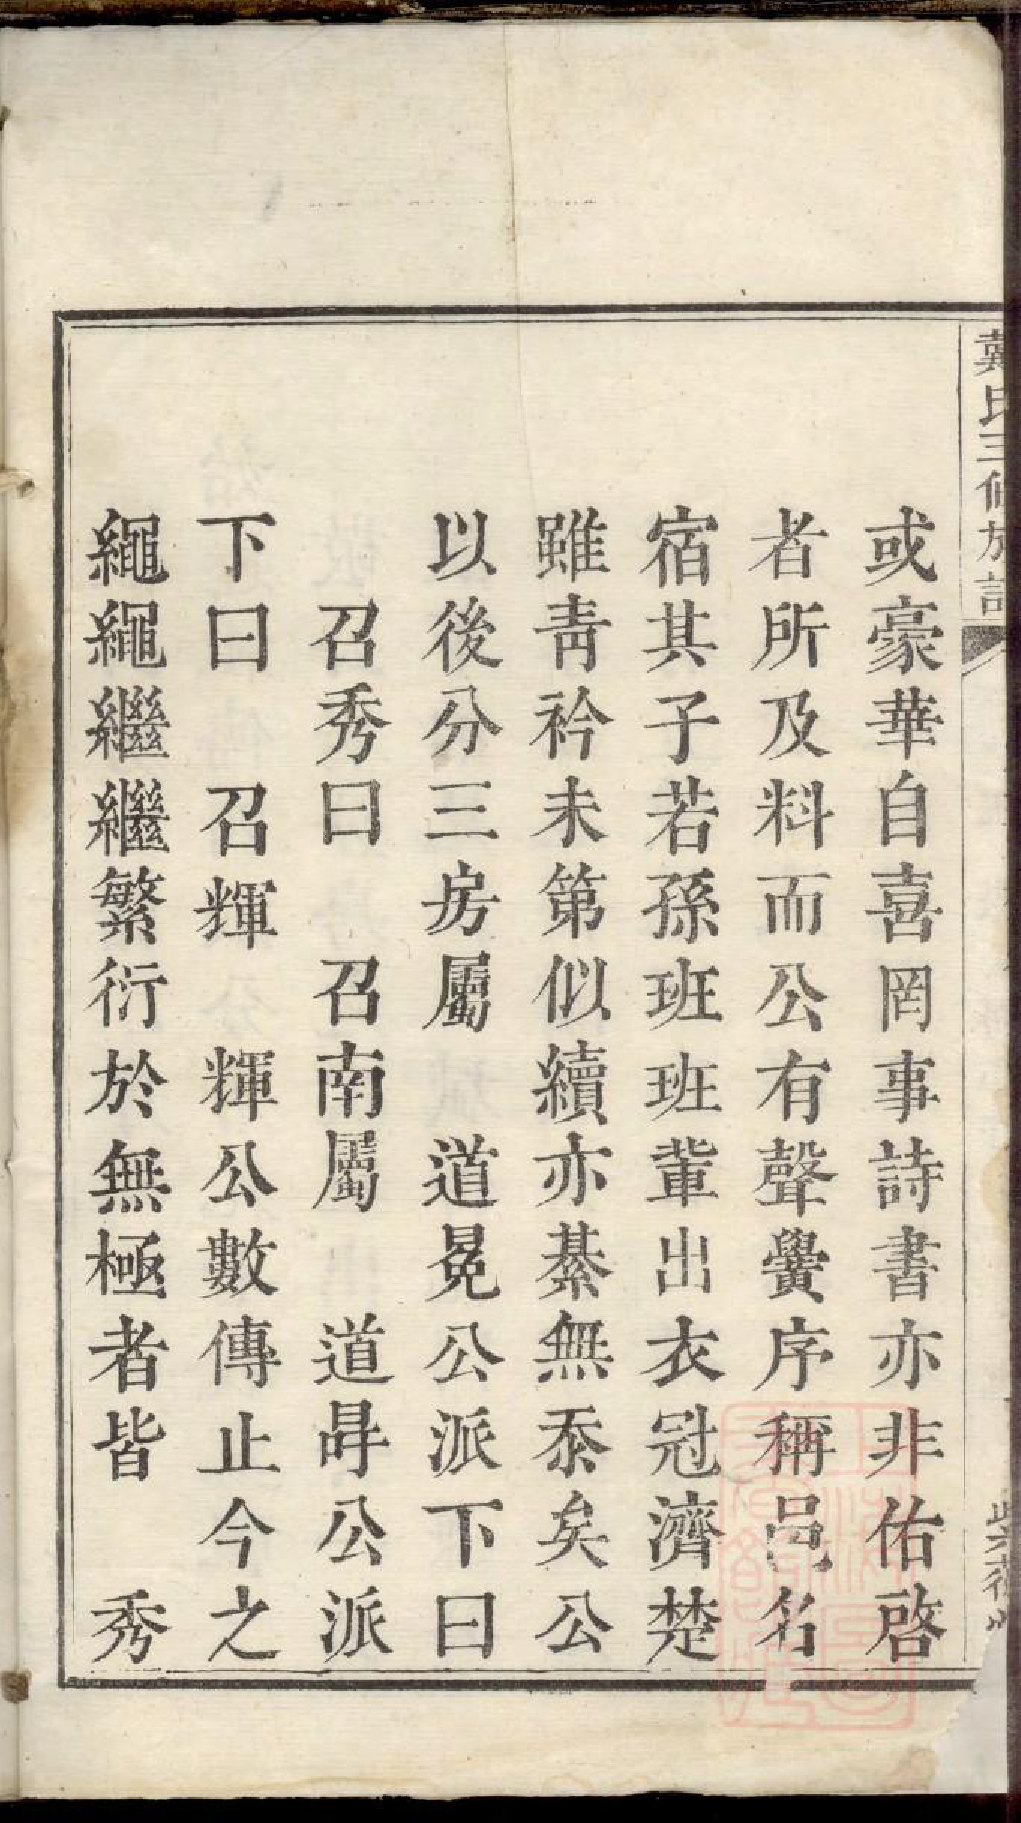 戴氏三修族譜
或豪華自喜罔事詩書亦非佑啓
者所及料而公有聲黌序稱邑名
宿其子若孫班班輩出衣冠濟楚
雖靑衿未第似續亦綦無忝矣公
以後分三房屬　道冕公派下曰
召秀曰　召南屬　道冔公派
下曰　召輝　輝公數傳止今之
繩繩繼繼繁衍於無極者皆　秀